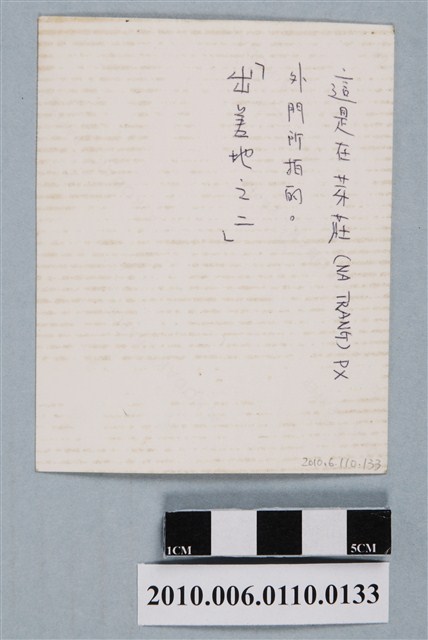 這是在芽莊(NA TRANG)PX
外門所拍的。
「出差地之二」
2010.6.110.133
1CM
5CM
2010.006.0110.0133